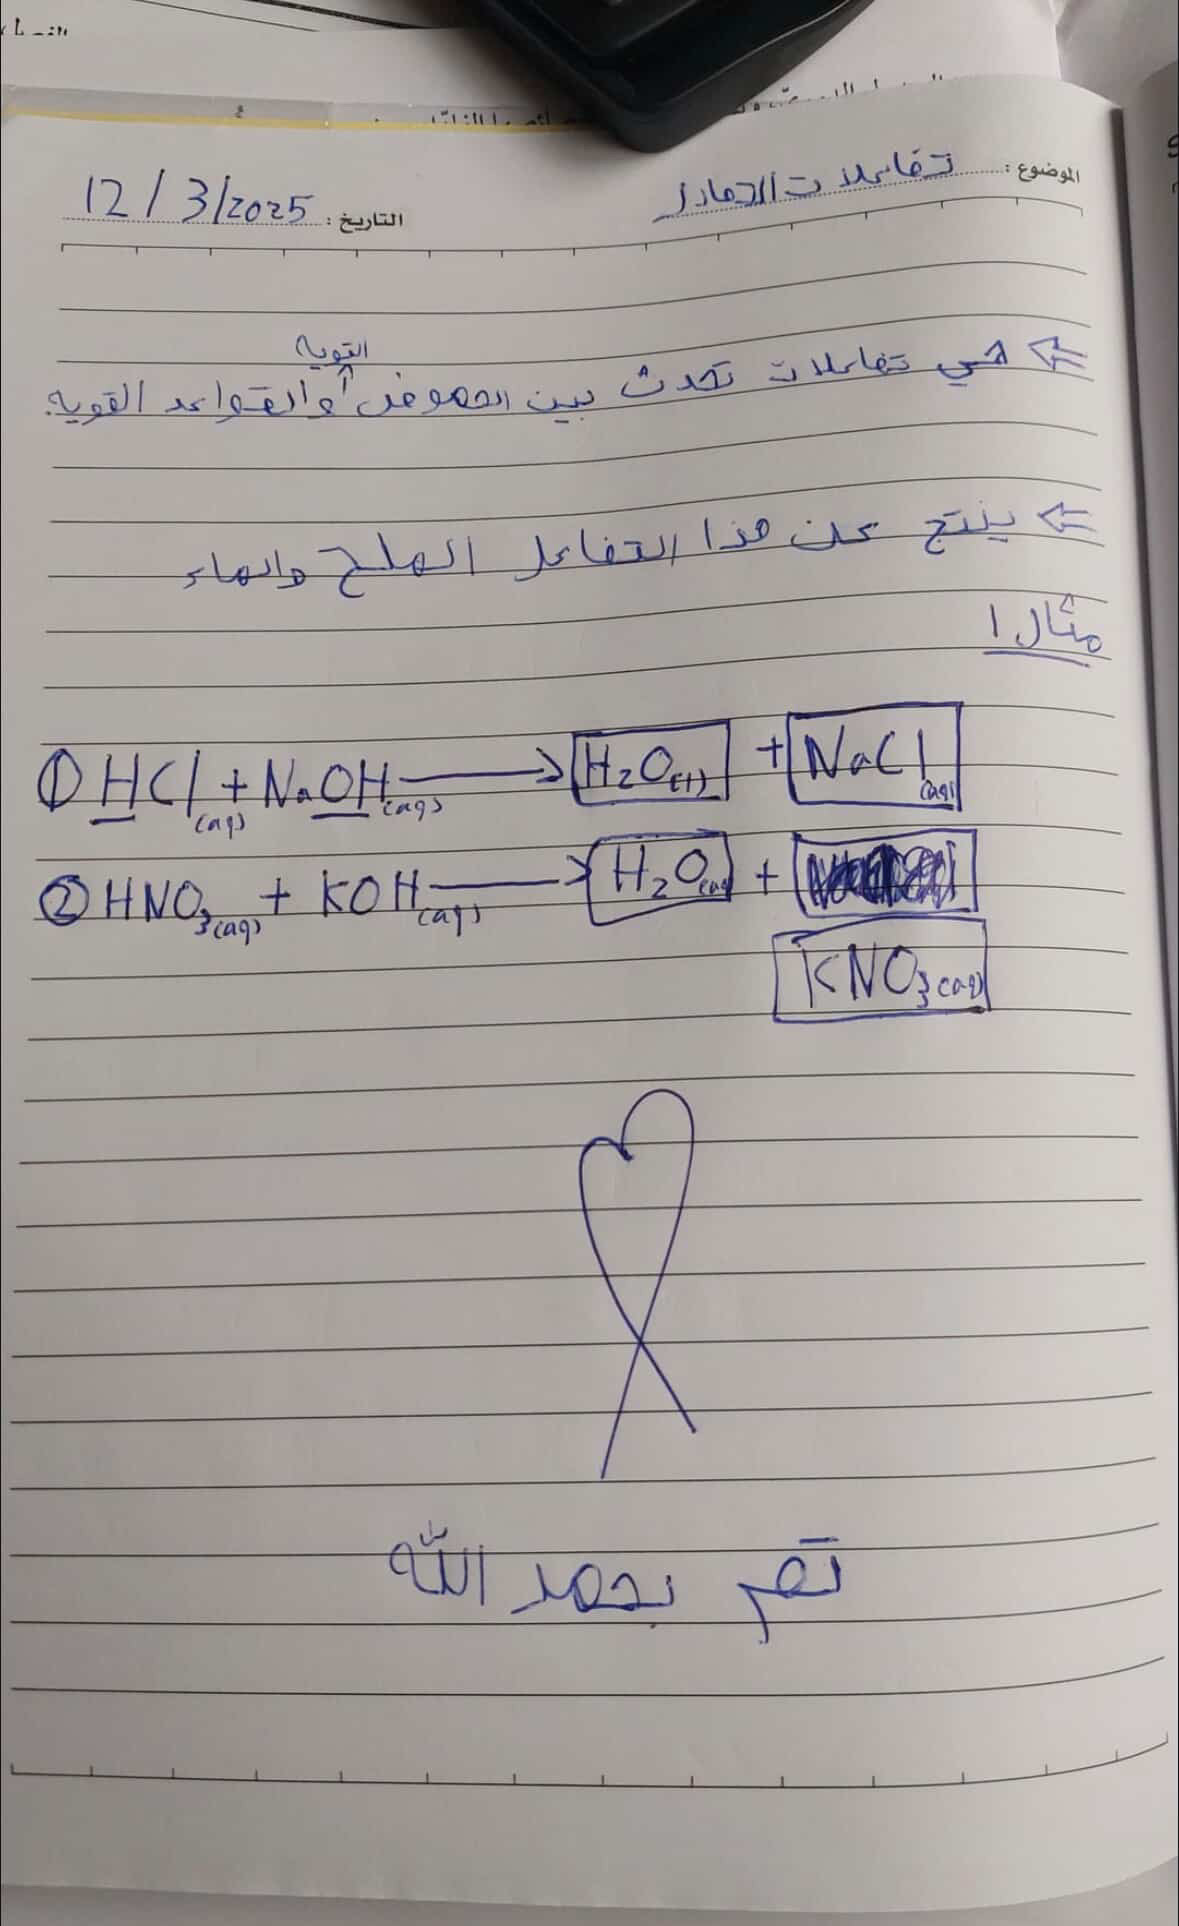 الموضوع: تفاعلات التعادل
التاريخ: 12/3/2025
⇐ هي تفاعلات تحدث بين الحموض القوية والقواعد القويه.
⇐ ينتج عن هذا التفاعل الملح والماء
مثال 1
① HCl(aq) + NaOH(aq) → H₂O(l) + NaCl(aq)
② HNO₃(aq) + KOH(aq) → H₂O(aq) +
KNO₃(aq)
تم بحمد الله